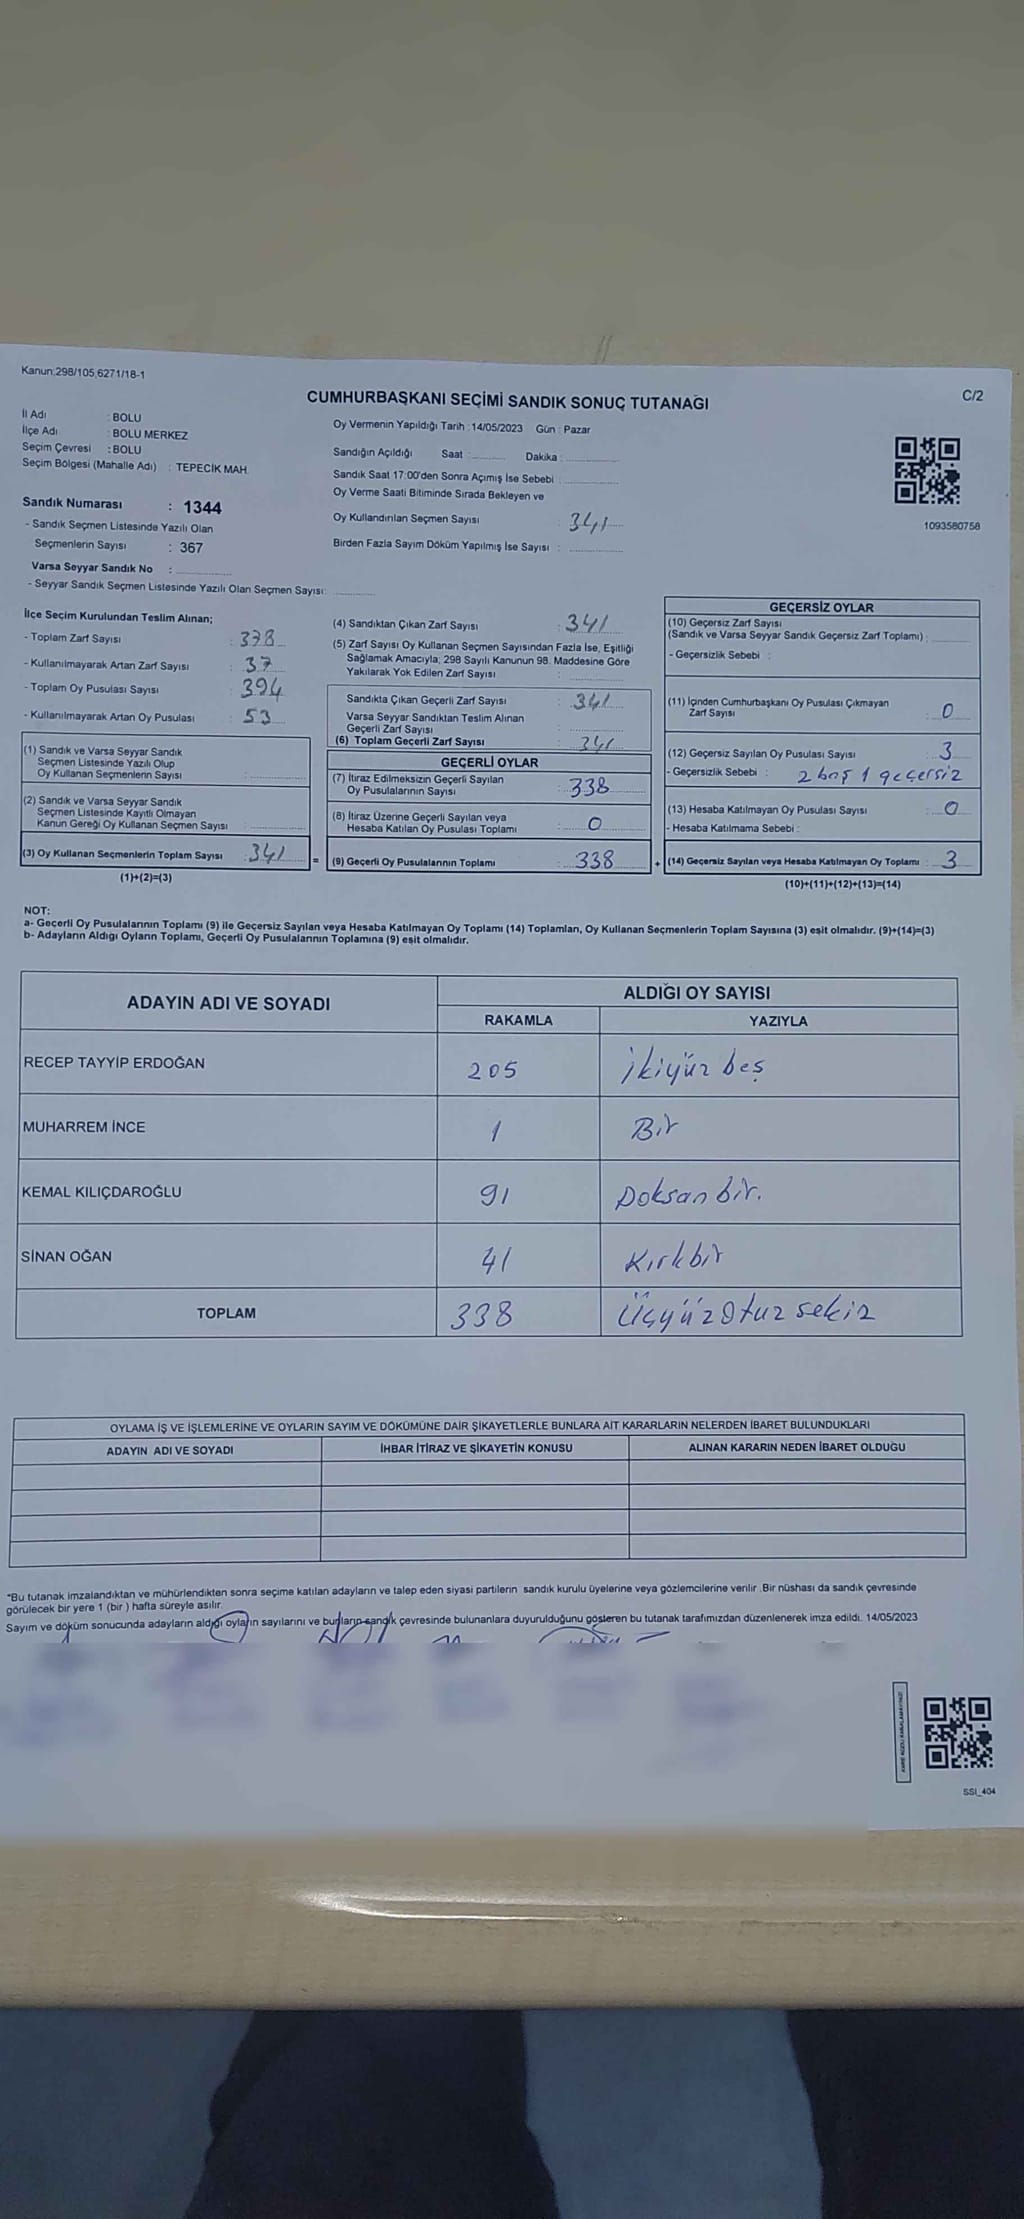 Kanun:298/105,6271/18-1
C/2
CUMHURBAŞKANI SEÇİMİ SANDIK SONUÇ TUTANAĞI
İl Adı : BOLU
İlçe Adı : BOLU MERKEZ
Seçim Çevresi : BOLU
Seçim Bölgesi (Mahalle Adı) : TEPECİK MAH.
Sandık Numarası : 1344
- Sandık Seçmen Listesinde Yazılı Olan
Seçmenlerin Sayısı : 367
Varsa Seyyar Sandık No :
- Seyyar Sandık Seçmen Listesinde Yazılı Olan Seçmen Sayısı:
Oy Vermenin Yapıldığı Tarih :14/05/2023 Gün : Pazar
Sandığın Açıldığı Saat : Dakika :
Sandık Saat 17:00'den Sonra Açımış İse Sebebi :
Oy Verme Saati Bitiminde Sırada Bekleyen ve
Oy Kullandırılan Seçmen Sayısı : 341
Birden Fazla Sayım Döküm Yapılmış İse Sayısı :
1093580758
İlçe Seçim Kurulundan Teslim Alınan;
- Toplam Zarf Sayısı : 378
- Kullanılmayarak Artan Zarf Sayısı : 37
- Toplam Oy Pusulası Sayısı : 394
- Kullanılmayarak Artan Oy Pusulası : 53
(1) Sandık ve Varsa Seyyar Sandık
Seçmen Listesinde Yazılı Olup
Oy Kullanan Seçmenlerin Sayısı :
(2) Sandık ve Varsa Seyyar Sandık
Seçmen Listesinde Kayıtlı Olmayan
Kanun Gereği Oy Kullanan Seçmen Sayısı :
(3) Oy Kullanan Seçmenlerin Toplam Sayısı : 341
(1)+(2)=(3)
=
(4) Sandıktan Çıkan Zarf Sayısı : 341
(5) Zarf Sayısı Oy Kullanan Seçmen Sayısından Fazla İse, Eşitliği
Sağlamak Amacıyla, 298 Sayılı Kanunun 98. Maddesine Göre
Yakılarak Yok Edilen Zarf Sayısı :
Sandıkta Çıkan Geçerli Zarf Sayısı : 341
Varsa Seyyar Sandıktan Teslim Alınan
Geçerli Zarf Sayısı :
(6) Toplam Geçerli Zarf Sayısı : 341
GEÇERLİ OYLAR
(7) İtiraz Edilmeksizin Geçerli Sayılan
Oy Pusulalarının Sayısı : 338
(8) İtiraz Üzerine Geçerli Sayılan veya
Hesaba Katılan Oy Pusulası Toplamı : 0
(9) Geçerli Oy Pusulalarının Toplamı : 338
+
GEÇERSİZ OYLAR
(10) Geçersiz Zarf Sayısı
(Sandık ve Varsa Seyyar Sandık Geçersiz Zarf Toplamı) :
- Geçersizlik Sebebi :
(11) İçinden Cumhurbaşkanı Oy Pusulası Çıkmayan
Zarf Sayısı : 0
(12) Geçersiz Sayılan Oy Pusulası Sayısı : 3
- Geçersizlik Sebebi : 2 boş 1 geçersiz
(13) Hesaba Katılmayan Oy Pusulası Sayısı : 0
- Hesaba Katılmama Sebebi :
(14) Geçersiz Sayılan veya Hesaba Katılmayan Oy Toplamı : 3
(10)+(11)+(12)+(13)=(14)
NOT:
a- Geçerli Oy Pusulalarının Toplamı (9) ile Geçersiz Sayılan veya Hesaba Katılmayan Oy Toplamı (14) Toplamları, Oy Kullanan Seçmenlerin Toplam Sayısına (3) eşit olmalıdır. (9)+(14)=(3)
b- Adayların Aldığı Oyların Toplamı, Geçerli Oy Pusulalarının Toplamına (9) eşit olmalıdır.
ADAYIN ADI VE SOYADI
ALDIĞI OY SAYISI
RAKAMLA YAZIYLA
RECEP TAYYİP ERDOĞAN 205 İkiyüz beş
MUHARREM İNCE 1 Bir
KEMAL KILIÇDAROĞLU 91 Doksan bir.
SİNAN OĞAN 41 Kırkbir
TOPLAM 338 Üçyüz Otuz sekiz
OYLAMA İŞ VE İŞLEMLERİNE VE OYLARIN SAYIM VE DÖKÜMÜNE DAİR ŞİKAYETLERLE BUNLARA AİT KARARLARIN NELERDEN İBARET BULUNDUKLARI
ADAYIN ADI VE SOYADI İHBAR İTİRAZ VE ŞİKAYETİN KONUSU ALINAN KARARIN NEDEN İBARET OLDUĞU
*Bu tutanak imzalandıktan ve mühürlendikten sonra seçime katılan adayların ve talep eden siyasi partilerin sandık kurulu üyelerine veya gözlemcilerine verilir. Bir nüshası da sandık çevresinde
görülecek bir yere 1 (bir ) hafta süreyle asılır.
Sayım ve döküm sonucunda adayların aldığı oyların sayılarını ve bunların sandık çevresinde bulunanlara duyurulduğunu gösteren bu tutanak tarafımızdan düzenlenerek imza edildi. 14/05/2023
SSI_404